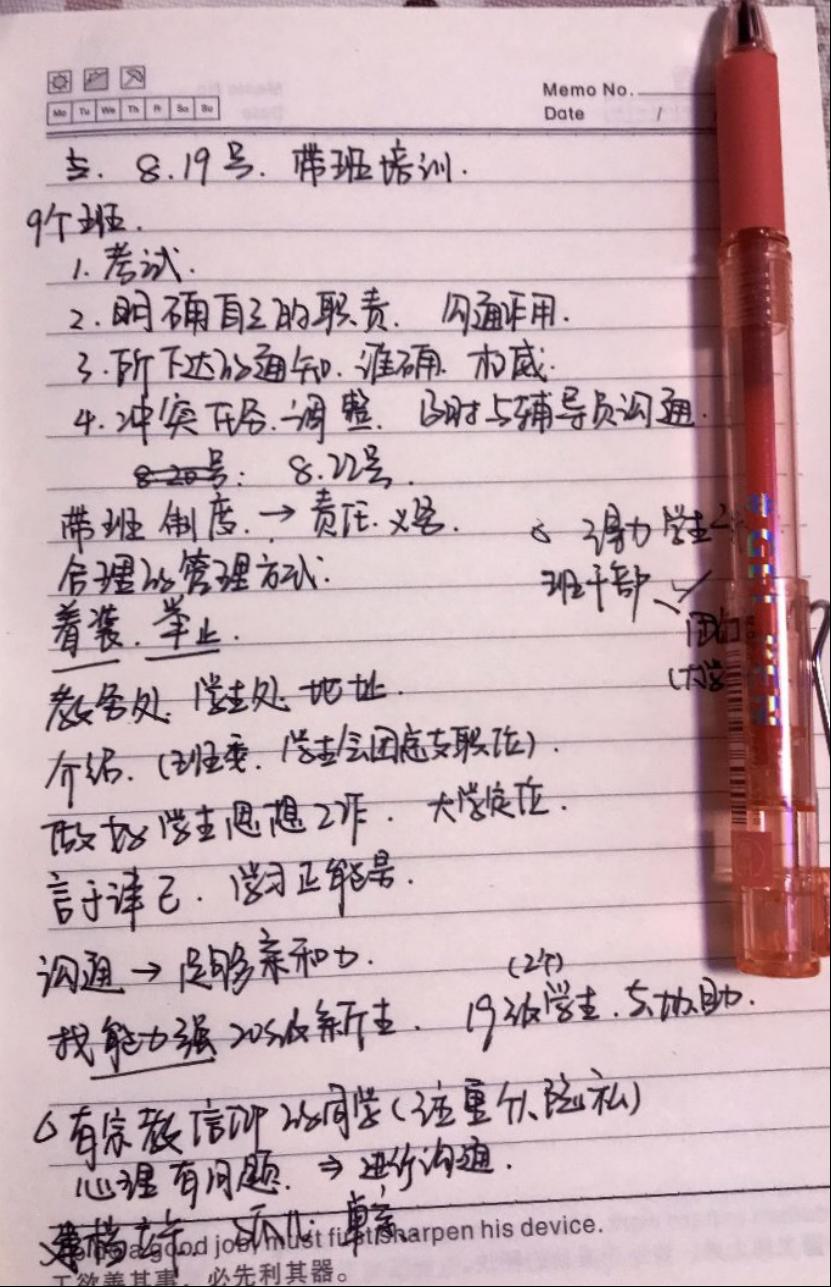 Mo Tu We Th Fr Sa Su
Memo No.
Date /
8.19号. 带班培训.
9个班.
1. 考试.
2. 明确自己的职责. 沟通作用.
3. 所下达的通知. 准确. 权威.
4. 冲突任务. 调整. 及时与辅导员沟通.
8.20号: 8.22号.
带班制度. → 责任. 义务.
得力学生
合理的管理方式:
班干部
着装. 举止.
教务处. 学生处. 地址.
介绍. (班委. 学生会团总支职位).
做好学生思想工作. 大学定位.
言于律己. 学习正能量.
沟通 → 足够亲和力.
(2个)
找能力强20级新生. 19级学生. 协助.
有宗教信仰的同学(注重个人隐私)
心理有问题. ⇒ 进行沟通.
建档 单亲.
good job, must first sharpen his device.
工欲善其事，必先利其器。